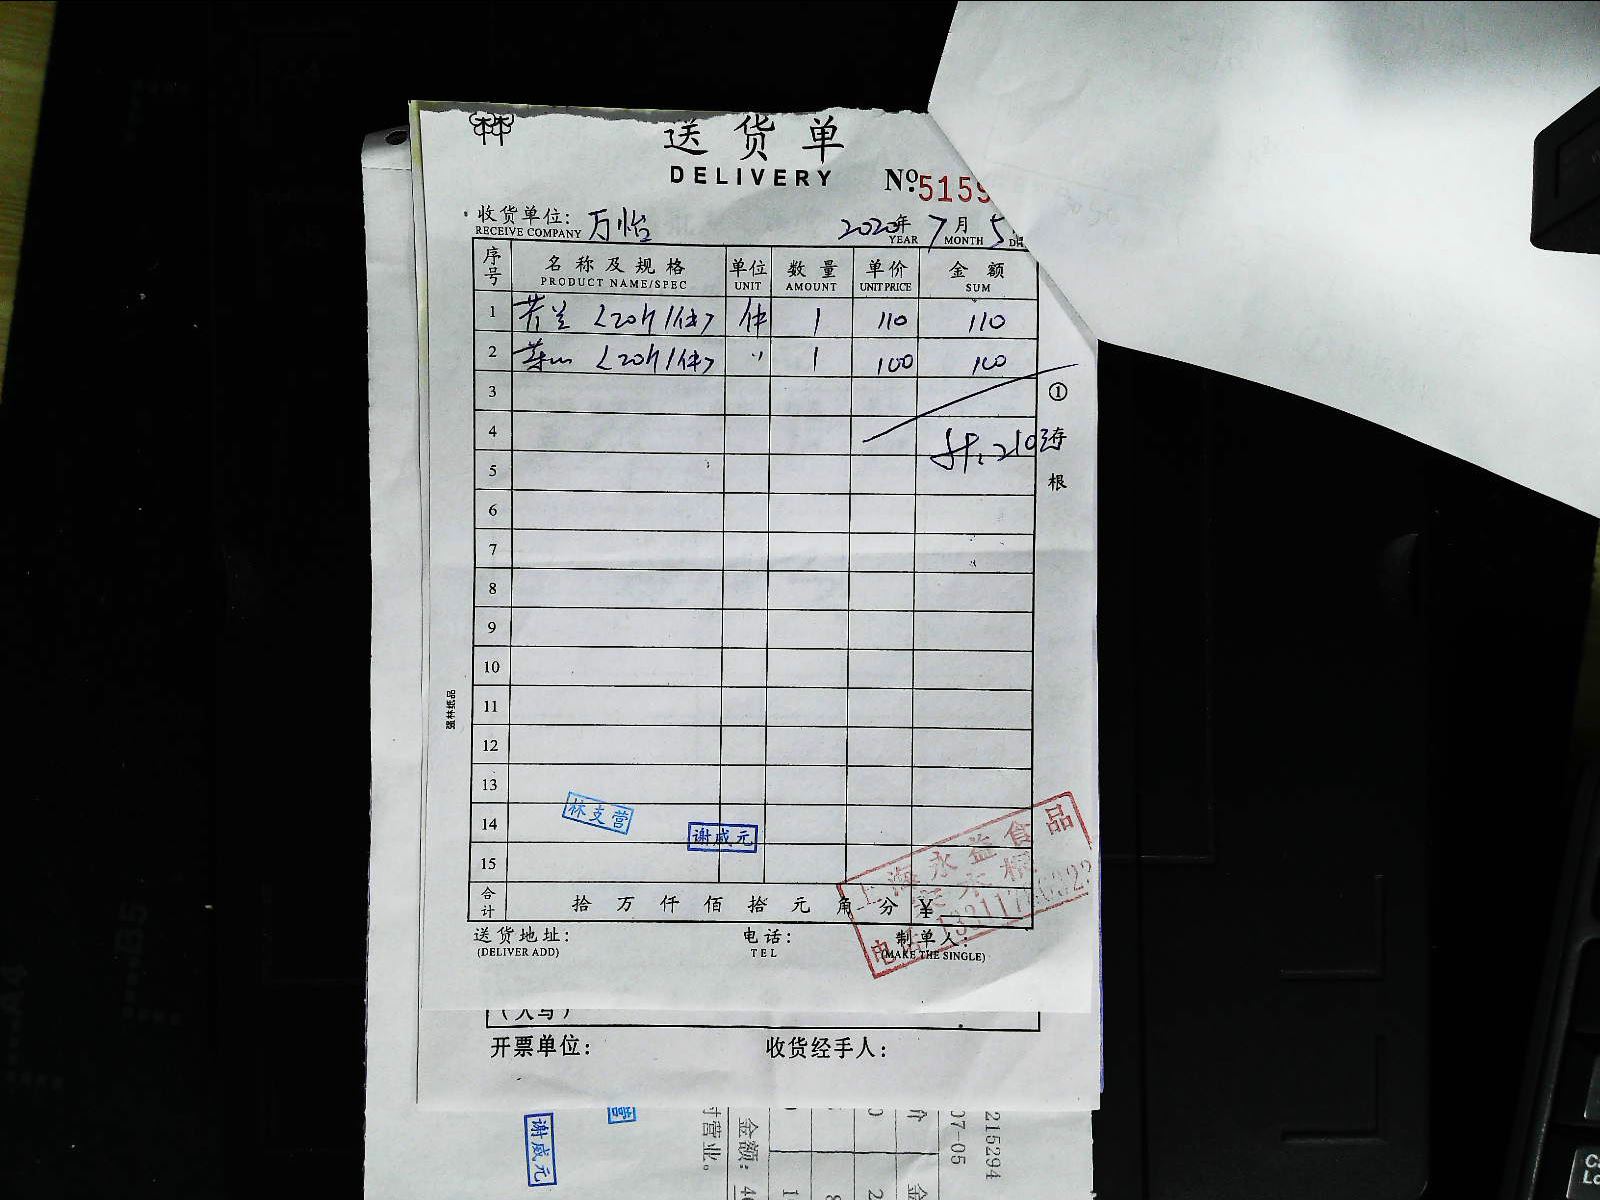 送货单
DELIVERY
№:5159
收货单位: 万怡 2020年 7月 5
RECEIVE COMPANY YEAR MONTH
序号 名称及规格 单位 数量 单价 金额
PRODUCT NAME/SPEC UNIT AMOUNT UNIT PRICE SUM
1 芥兰 <20斤/件> 件 1 110 110
2 菜心 <20斤/件> 〃 1 100 100
3
4 计:210
5
6
7
8
9
10
11
12
13
14
15
① 存根
强林纸品
林支营
谢威元
合计 拾 万 仟 佰 拾 元 角 分 ¥
上海永益食品
电话
送货地址: 电话: 制单人:
(DELIVER ADD) TEL (MAKE THE SINGLE)
(大写)
开票单位: 收货经手人:
谢威元
营
时营业。
金额: 4
价
金
07-05
215294
A4
B5